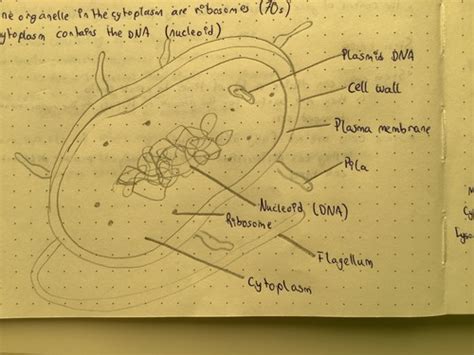 ne organelle in the cytoplasm are ribosomes (70s)
ytoplasm contains the DNA (nucleoid)
Plasmid DNA
Cell wall
Plasma membrane
Pila
Nucleoid (DNA)
Ribosome
Flagellum
Cytoplasm